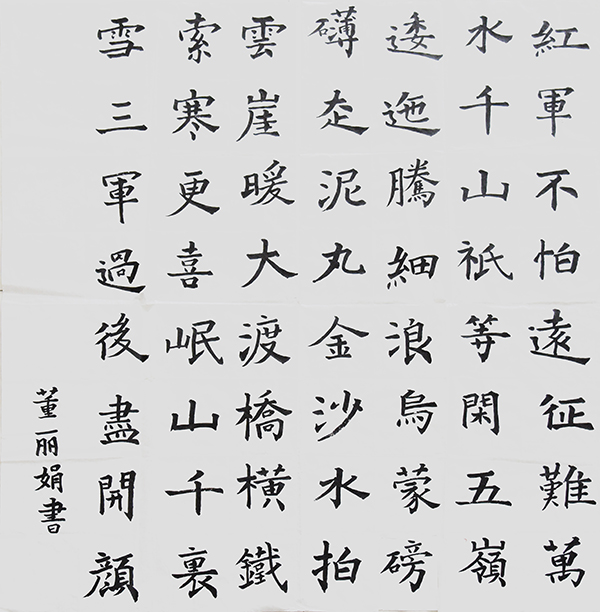 紅軍不怕遠征難萬
水千山祇等閑五嶺
逶迤騰細浪烏蒙磅
礴走泥丸金沙水拍
雲崖暖大渡橋橫鐵
索寒更喜岷山千裏
雪三軍過後盡開顏
董丽娟書